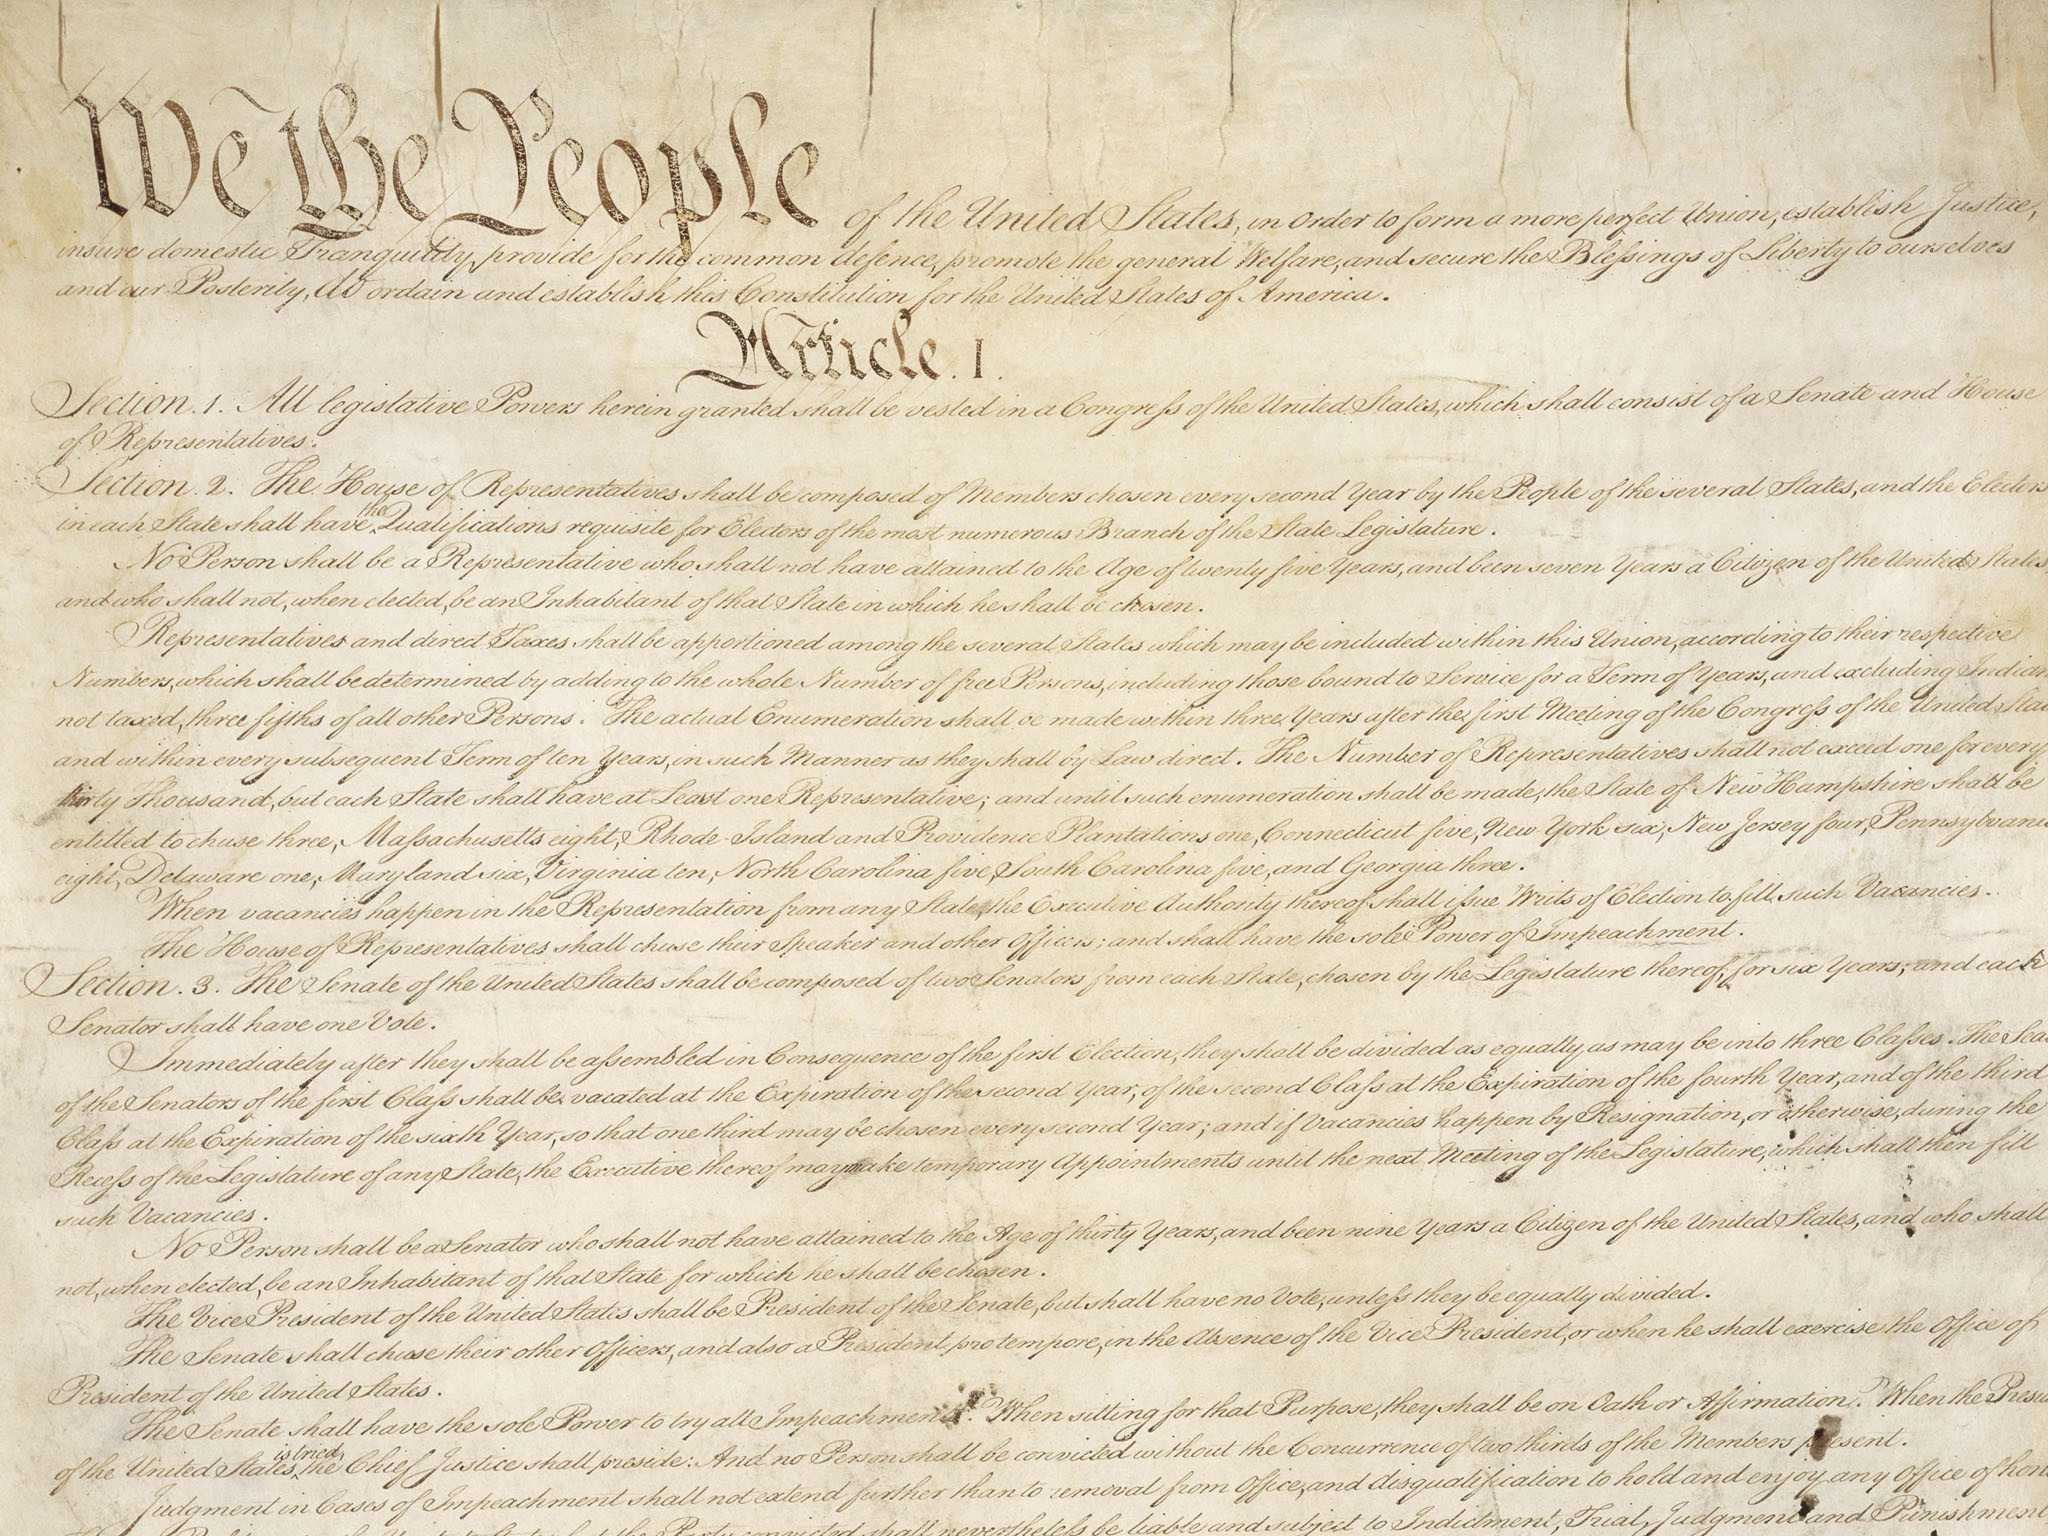 We the People of the United States, in Order to form a more perfect Union, establish Justice,
insure domestic Tranquility, provide for the common defence, promote the general Welfare, and secure the Blessings of Liberty to ourselves
and our Posterity, do ordain and establish this Constitution for the United States of America.
Article. I.
Section. 1. All legislative Powers herein granted shall be vested in a Congress of the United States, which shall consist of a Senate and House
of Representatives.
Section. 2. The House of Representatives shall be composed of Members chosen every second Year by the People of the several States, and the Electors
in each State shall have the Qualifications requisite for Electors of the most numerous Branch of the State Legislature.
No Person shall be a Representative who shall not have attained to the Age of twenty five Years, and been seven Years a Citizen of the United States,
and who shall not, when elected, be an Inhabitant of that State in which he shall be chosen.
Representatives and direct Taxes shall be apportioned among the several States which may be included within this Union, according to their respective
Numbers, which shall be determined by adding to the whole Number of free Persons, including those bound to Service for a Term of Years, and excluding Indian
not taxed, three fifths of all other Persons. The actual Enumeration shall be made within three Years after the first Meeting of the Congress of the United Stat
and within every subsequent Term of ten Years, in such Manner as they shall by Law direct. The Number of Representatives shall not exceed one for every
thirty Thousand, but each State shall have at Least one Representative; and until such enumeration shall be made, the State of New Hampshire shall be
entitled to chuse three, Massachusetts eight, Rhode-Island and Providence Plantations one, Connecticut five, New-York six, New Jersey four, Pennsylvania
eight, Delaware one, Maryland six, Virginia ten, North Carolina five, South Carolina five, and Georgia three.
When vacancies happen in the Representation from any State, the Executive Authority thereof shall issue Writs of Election to fill such Vacancies.
The House of Representatives shall chuse their Speaker and other Officers; and shall have the sole Power of Impeachment.
Section. 3. The Senate of the United States shall be composed of two Senators from each State, chosen by the Legislature thereof, for six Years; and each
Senator shall have one Vote.
Immediately after they shall be assembled in Consequence of the first Election, they shall be divided as equally as may be into three Classes. The Sea
of the Senators of the first Class shall be vacated at the Expiration of the second Year, of the second Class at the Expiration of the fourth Year, and of the third
Class at the Expiration of the sixth Year, so that one third may be chosen every second Year; and if Vacancies happen by Resignation, or otherwise, during the
Recess of the Legislature of any State, the Executive thereof may make temporary Appointments until the next Meeting of the Legislature, which shall then fill
such Vacancies.
No Person shall be a Senator who shall not have attained to the Age of thirty Years, and been nine Years a Citizen of the United States, and who shall
not, when elected, be an Inhabitant of that State for which he shall be chosen.
The Vice President of the United States shall be President of the Senate, but shall have no Vote, unless they be equally divided.
The Senate shall chuse their other Officers, and also a President pro tempore, in the Absence of the Vice President, or when he shall exercise the Office of
President of the United States.
The Senate shall have the sole Power to try all Impeachments. When sitting for that Purpose, they shall be on Oath or Affirmation. When the Presid
of the United States is tried, the Chief Justice shall preside: And no Person shall be convicted without the Concurrence of two thirds of the Members present.
Judgment in Cases of Impeachment shall not extend further than to removal from Office, and disqualification to hold and enjoy any Office of hon
the Party convicted shall nevertheless be liable and subject to Indictment, Trial, Judgment and Punishment